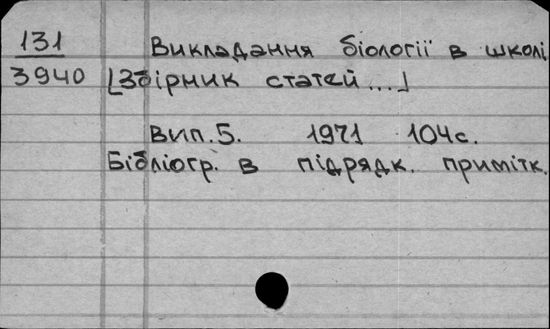 131 Викладання біології в школі
3940 [Збірник статей...]
Вип. 5. 1971 104с.
Бібліогр. в підрядк. примітк.